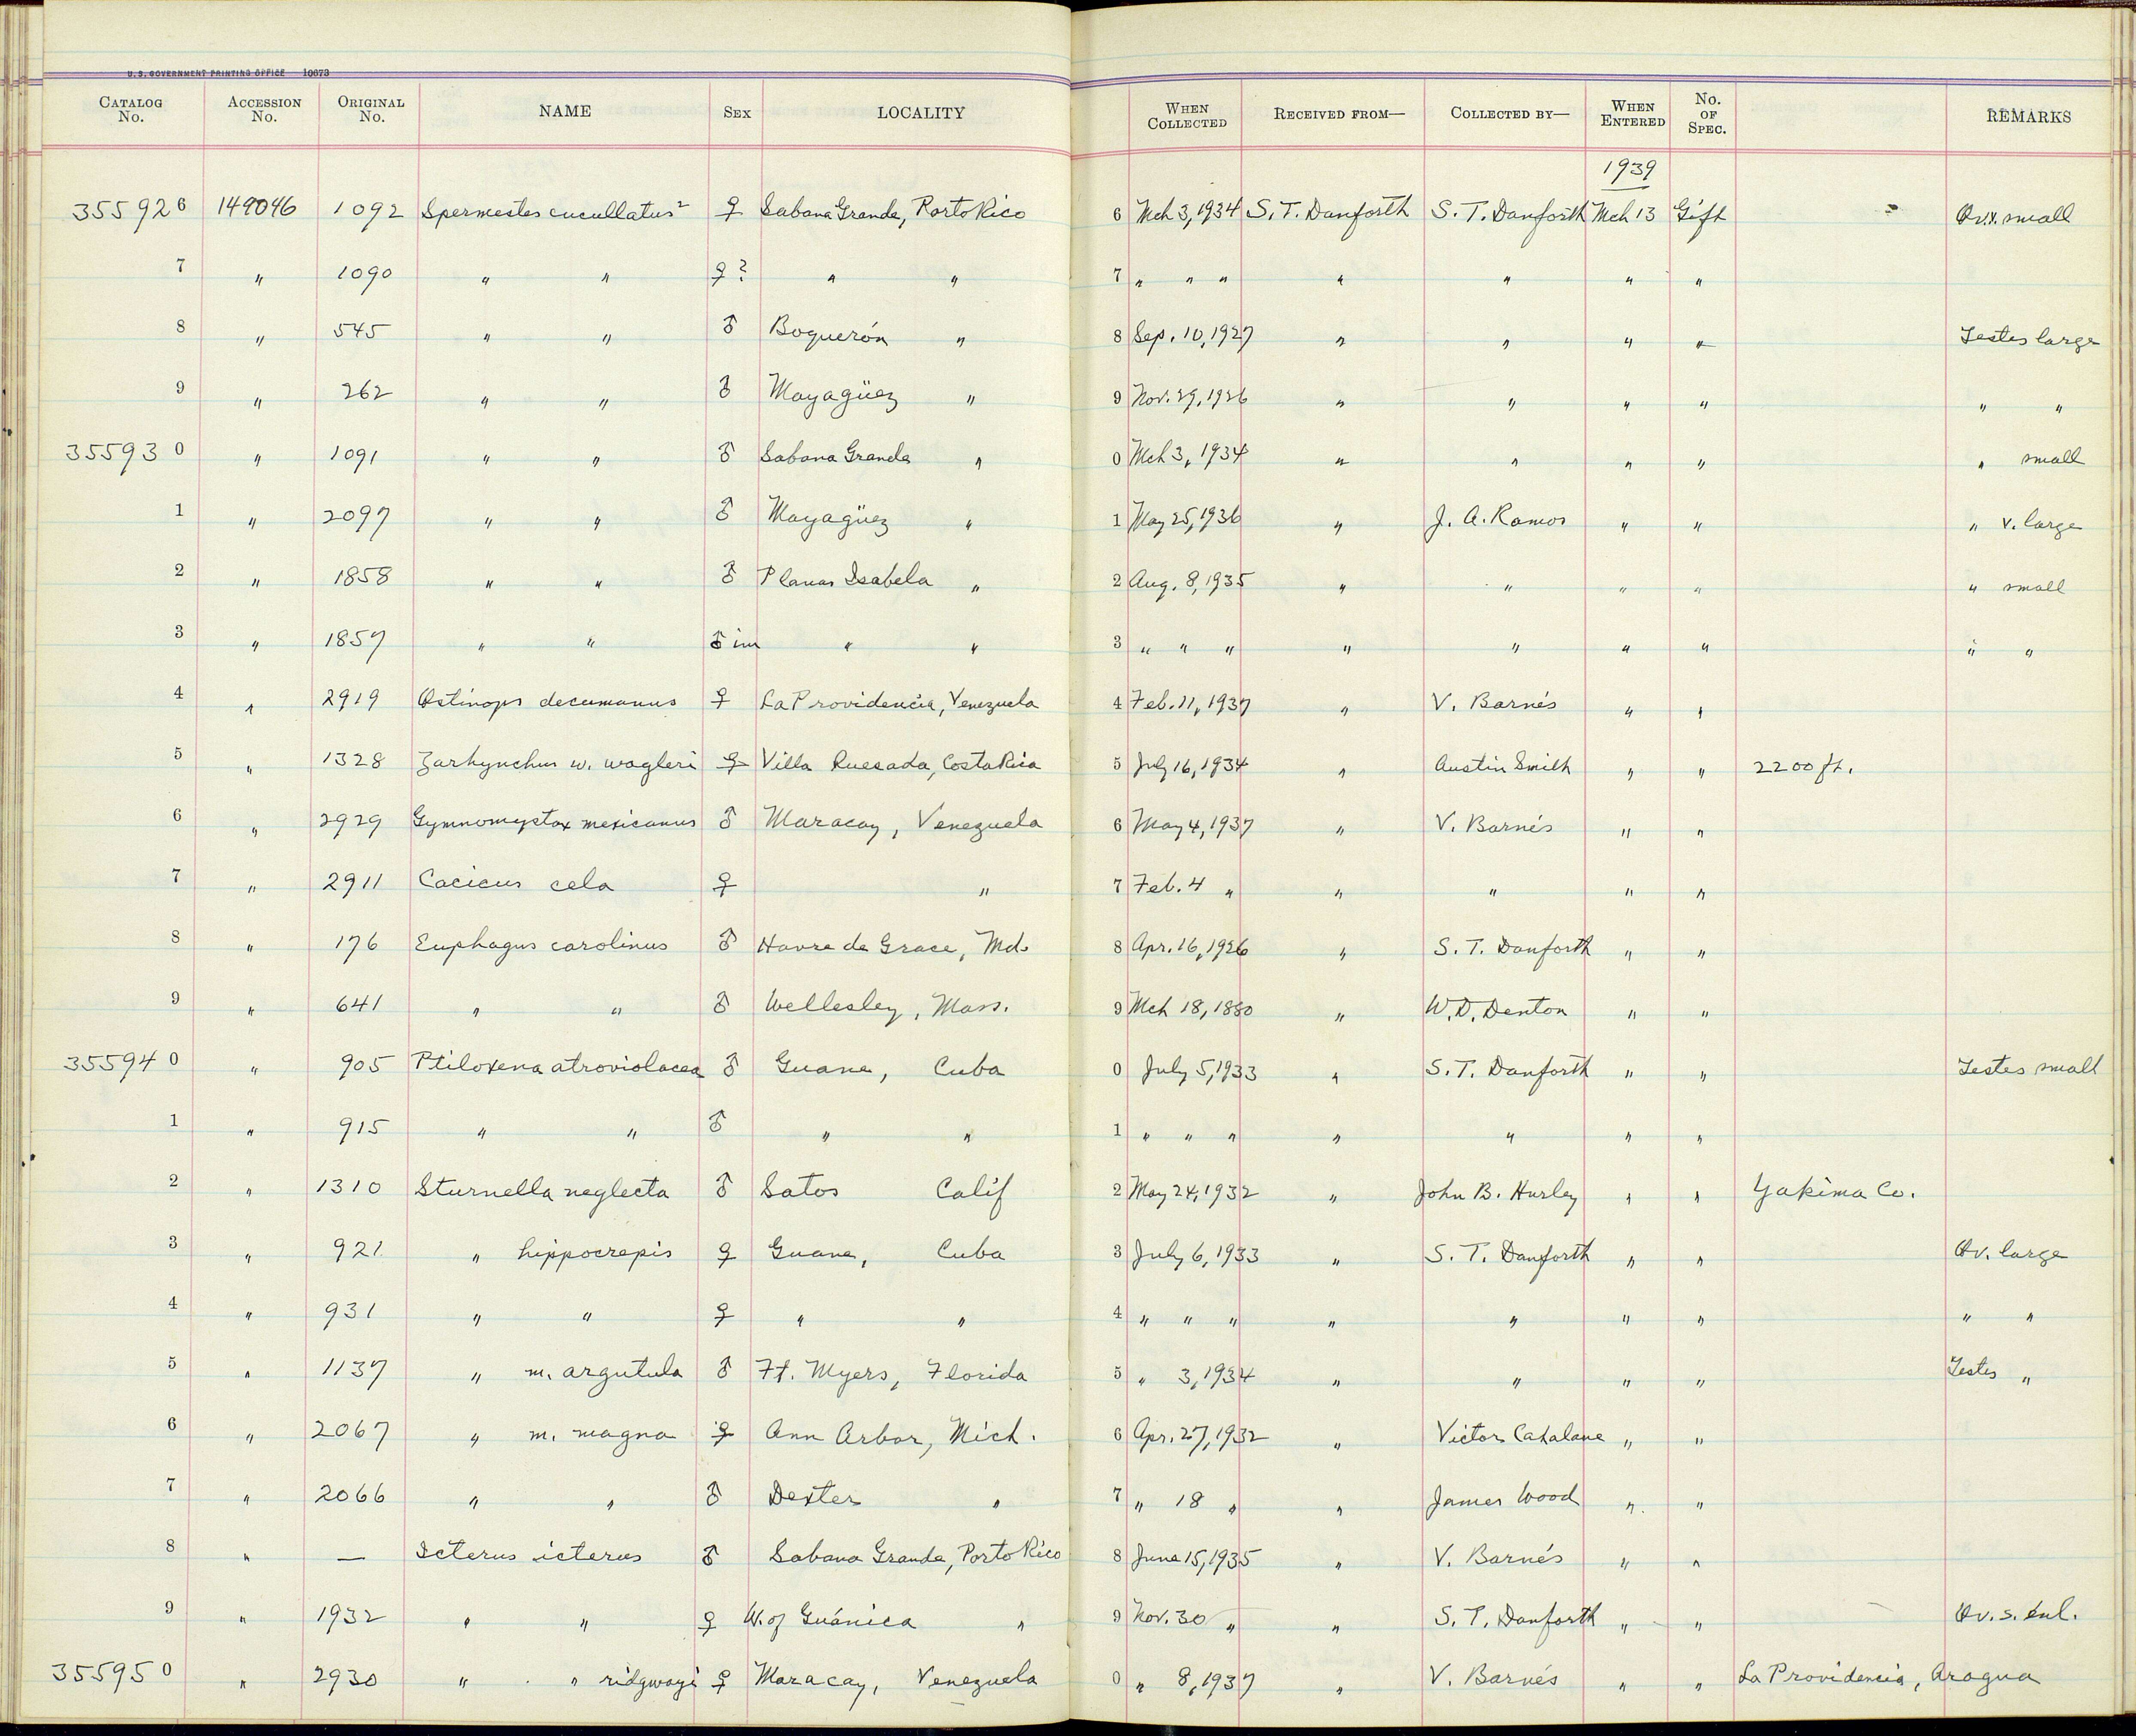 U. S. GOVERNMENT PRINTING OFFICE 10673
CATALOG No. ACCESSION No. ORIGINAL No. NAME SEX LOCALITY WHEN COLLECTED RECEIVED FROM— COLLECTED BY— WHEN ENTERED No. OF SPEC. REMARKS
1939
355926 149046 1092 Spermestes cucullatus ♀ Sabana Grande, Porto Rico 6 Mch 3, 1934 S. T. Danforth S. T. Danforth Mch 13 Gift Ov. small
7 " 1090 " " ♀? " " 7 " " " " " " "
8 " 545 " " ♂ Boquerón " 8 Sep. 10, 1927 " " " " Testes large
9 " 262 " " ♂ Mayagüez " 9 Nov. 29, 1926 " " " " " "
355930 " 1091 " " ♂ Sabana Grande " 0 Mch 3, 1934 " " " " " small
1 " 2097 " " ♂ Mayagüez " 1 May 25, 1936 " J. A. Ramos " " " v. large
2 " 1858 " " ♂ Planas Isabela " 2 Aug. 8, 1935 " " " " " small
3 " 1857 " " ♂ im " " 3 " " " " " " " " "
4 " 2919 Ostinops decumanus ♀ La Providencia, Venezuela 4 Feb. 11, 1937 " V. Barnés " "
5 " 1328 Zarhynchus w. wagleri ♀ Villa Quesada, Costa Rica 5 July 16, 1934 " Austin Smith " " 2200 ft.
6 " 2929 Gymnomystax mexicanus ♂ Maracay, Venezuela 6 May 4, 1937 " V. Barnés " "
7 " 2911 Cacicus cela ♀ " 7 Feb. 4 " " " " "
8 " 176 Euphagus carolinus ♂ Havre de Grace, Md. 8 Apr. 16, 1926 " S. T. Danforth " "
9 " 641 " " ♂ Wellesley, Mass. 9 Mch 18, 1880 " W. D. Denton " "
355940 " 905 Ptiloxena atroviolacea ♂ Guane, Cuba 0 July 5, 1933 " S. T. Danforth " " Testes small
1 " 915 " " ♂ " " 1 " " " " " " "
2 " 1310 Sturnella neglecta ♂ Satos Calif 2 May 24, 1932 " John B. Hurley " " Yakima Co.
3 " 921 " hippocrepis ♀ Guane, Cuba 3 July 6, 1933 " S. T. Danforth " " Ov. large
4 " 931 " " ♀ " " 4 " " " " " " " " "
5 " 1137 " m. argutula ♂ Ft. Myers, Florida 5 " 3, 1934 " " " " Testes "
6 " 2067 " m. magna ♀ Ann Arbor, Mich. 6 Apr. 27, 1932 " Victor Cahalane " "
7 " 2066 " " ♂ Dexter " 7 " 18 " " James Wood " "
8 " — Icterus icterus ♂ Sabana Grande, Porto Rico 8 June 15, 1935 " V. Barnés " "
9 " 1932 " " ♀ W. of Guánica " 9 Nov. 30 " " S. T. Danforth " " Ov. s. enl.
355950 " 2930 " " ridgwayi ♀ Maracay, Venezuela 0 " 8, 1937 " V. Barnés " " La Providencia, Aragua